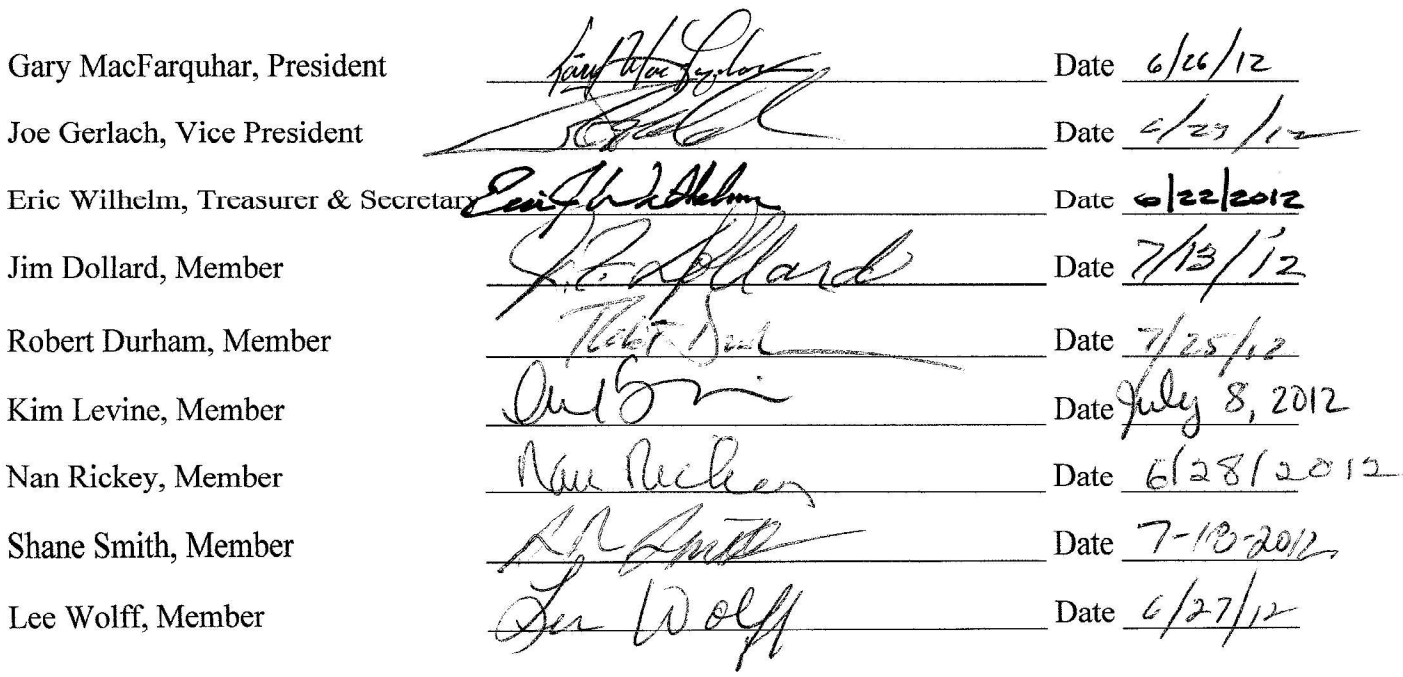 Gary MacFarquhar, President Date 6/26/12
Joe Gerlach, Vice President Date 6/29/12
Eric Wilhelm, Treasurer & Secretary Eric J Wilhelm Date 6/22/2012
Jim Dollard, Member J.E. Dollard Date 7/13/12
Robert Durham, Member Date 7/25/12
Kim Levine, Member Date July 8, 2012
Nan Rickey, Member Nan Rickey Date 6/28/2012
Shane Smith, Member Smith Date 2012
Lee Wolff, Member Lee Wolff Date 6/27/12